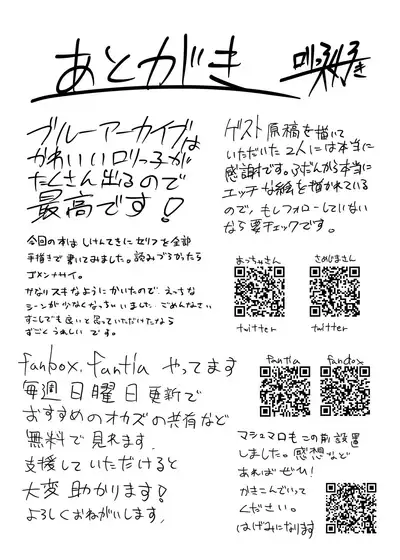 あとがき
ブルーアーカイブは
かわいいロリっ子が
たくさん出るので
最高です!
今回の本はしけんてきにセリフを全部
手描きで書いてみました。読みづらかったら
ゴメンナサイ。
かなりスキなようにかいたので、えっちな
シーンが少なくなっちゃいました。ごめんなさい
すこしでも良いと思っていただけたなら
すごくうれしいです。
ゲスト原稿を描いて
いただいた2人には本当に
感謝です。ふだんから本当に
エッチな絵を描かれている
ので、もしフォローしていない
なら要チェックです。
あっちゃさん
さめじまさん
twitter
twitter
fanbox、fantia やってます
毎週日曜日更新で
おすすめのオカズの共有など
無料で見れます。
支援していただけると
大変助かります!
よろしくおねがいします。
fantia
fanbox
マシュマロもこの前設置
しました。感想など
あればぜひ!
かきこんでいって
ください。
はげみになります